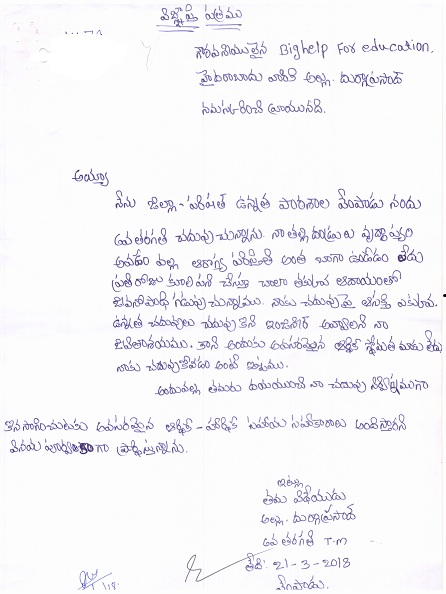 విజ్ఞాప్తి పత్రము
గౌరవనీయులైన Bighelp For education,
హైదరాబాదు వారికి అల్లు. దుర్గాప్రసాద్
నమస్కరించి వ్రాయునది.
అయ్యా
నేను జిల్లా-పరిషత్ ఉన్నత పాఠశాల వేంపాడు నందు
9వ తరగతి చదువుచున్నాను. నా తల్లిదండ్రులు వృద్ధాప్యం
అవడం వల్ల ఆరోగ్య పరిస్థితి అంత బాగా ఉండడం లేదు
ప్రతిరోజు కూలి పని చేస్తూ చాలా తక్కువ ఆదాయంతో
జీవనోపాధి గడుపుచున్నాము. నాకు చదువుపై ఆసక్తి ఎక్కువ.
ఉన్నత చదువులు చదువుకొని ఇంజనీర్ అవ్వాలని నా
జీవితాశయము. కానీ అందుకు అవసరమైన ఆర్థిక స్థోమత మాకు లేదు
నాకు చదువుకోవడం అంటే ఇష్టము.
అందువల్ల తమరు దయయుంచి నా చదువు నిర్విఘ్నముగా
కొనసాగించుటకు అవసరమైన ఆర్థిక-హార్థిక సహాయ సహకారాలు అందిస్తారని
వినయ పూర్వకంగా ప్రార్థిస్తున్నాను.
ఇట్లు
తమ విధేయుడు
అల్లు. దుర్గాప్రసాద్
9వ తరగతి T.M
తేది: 21-3-2018
వేంపాడు.